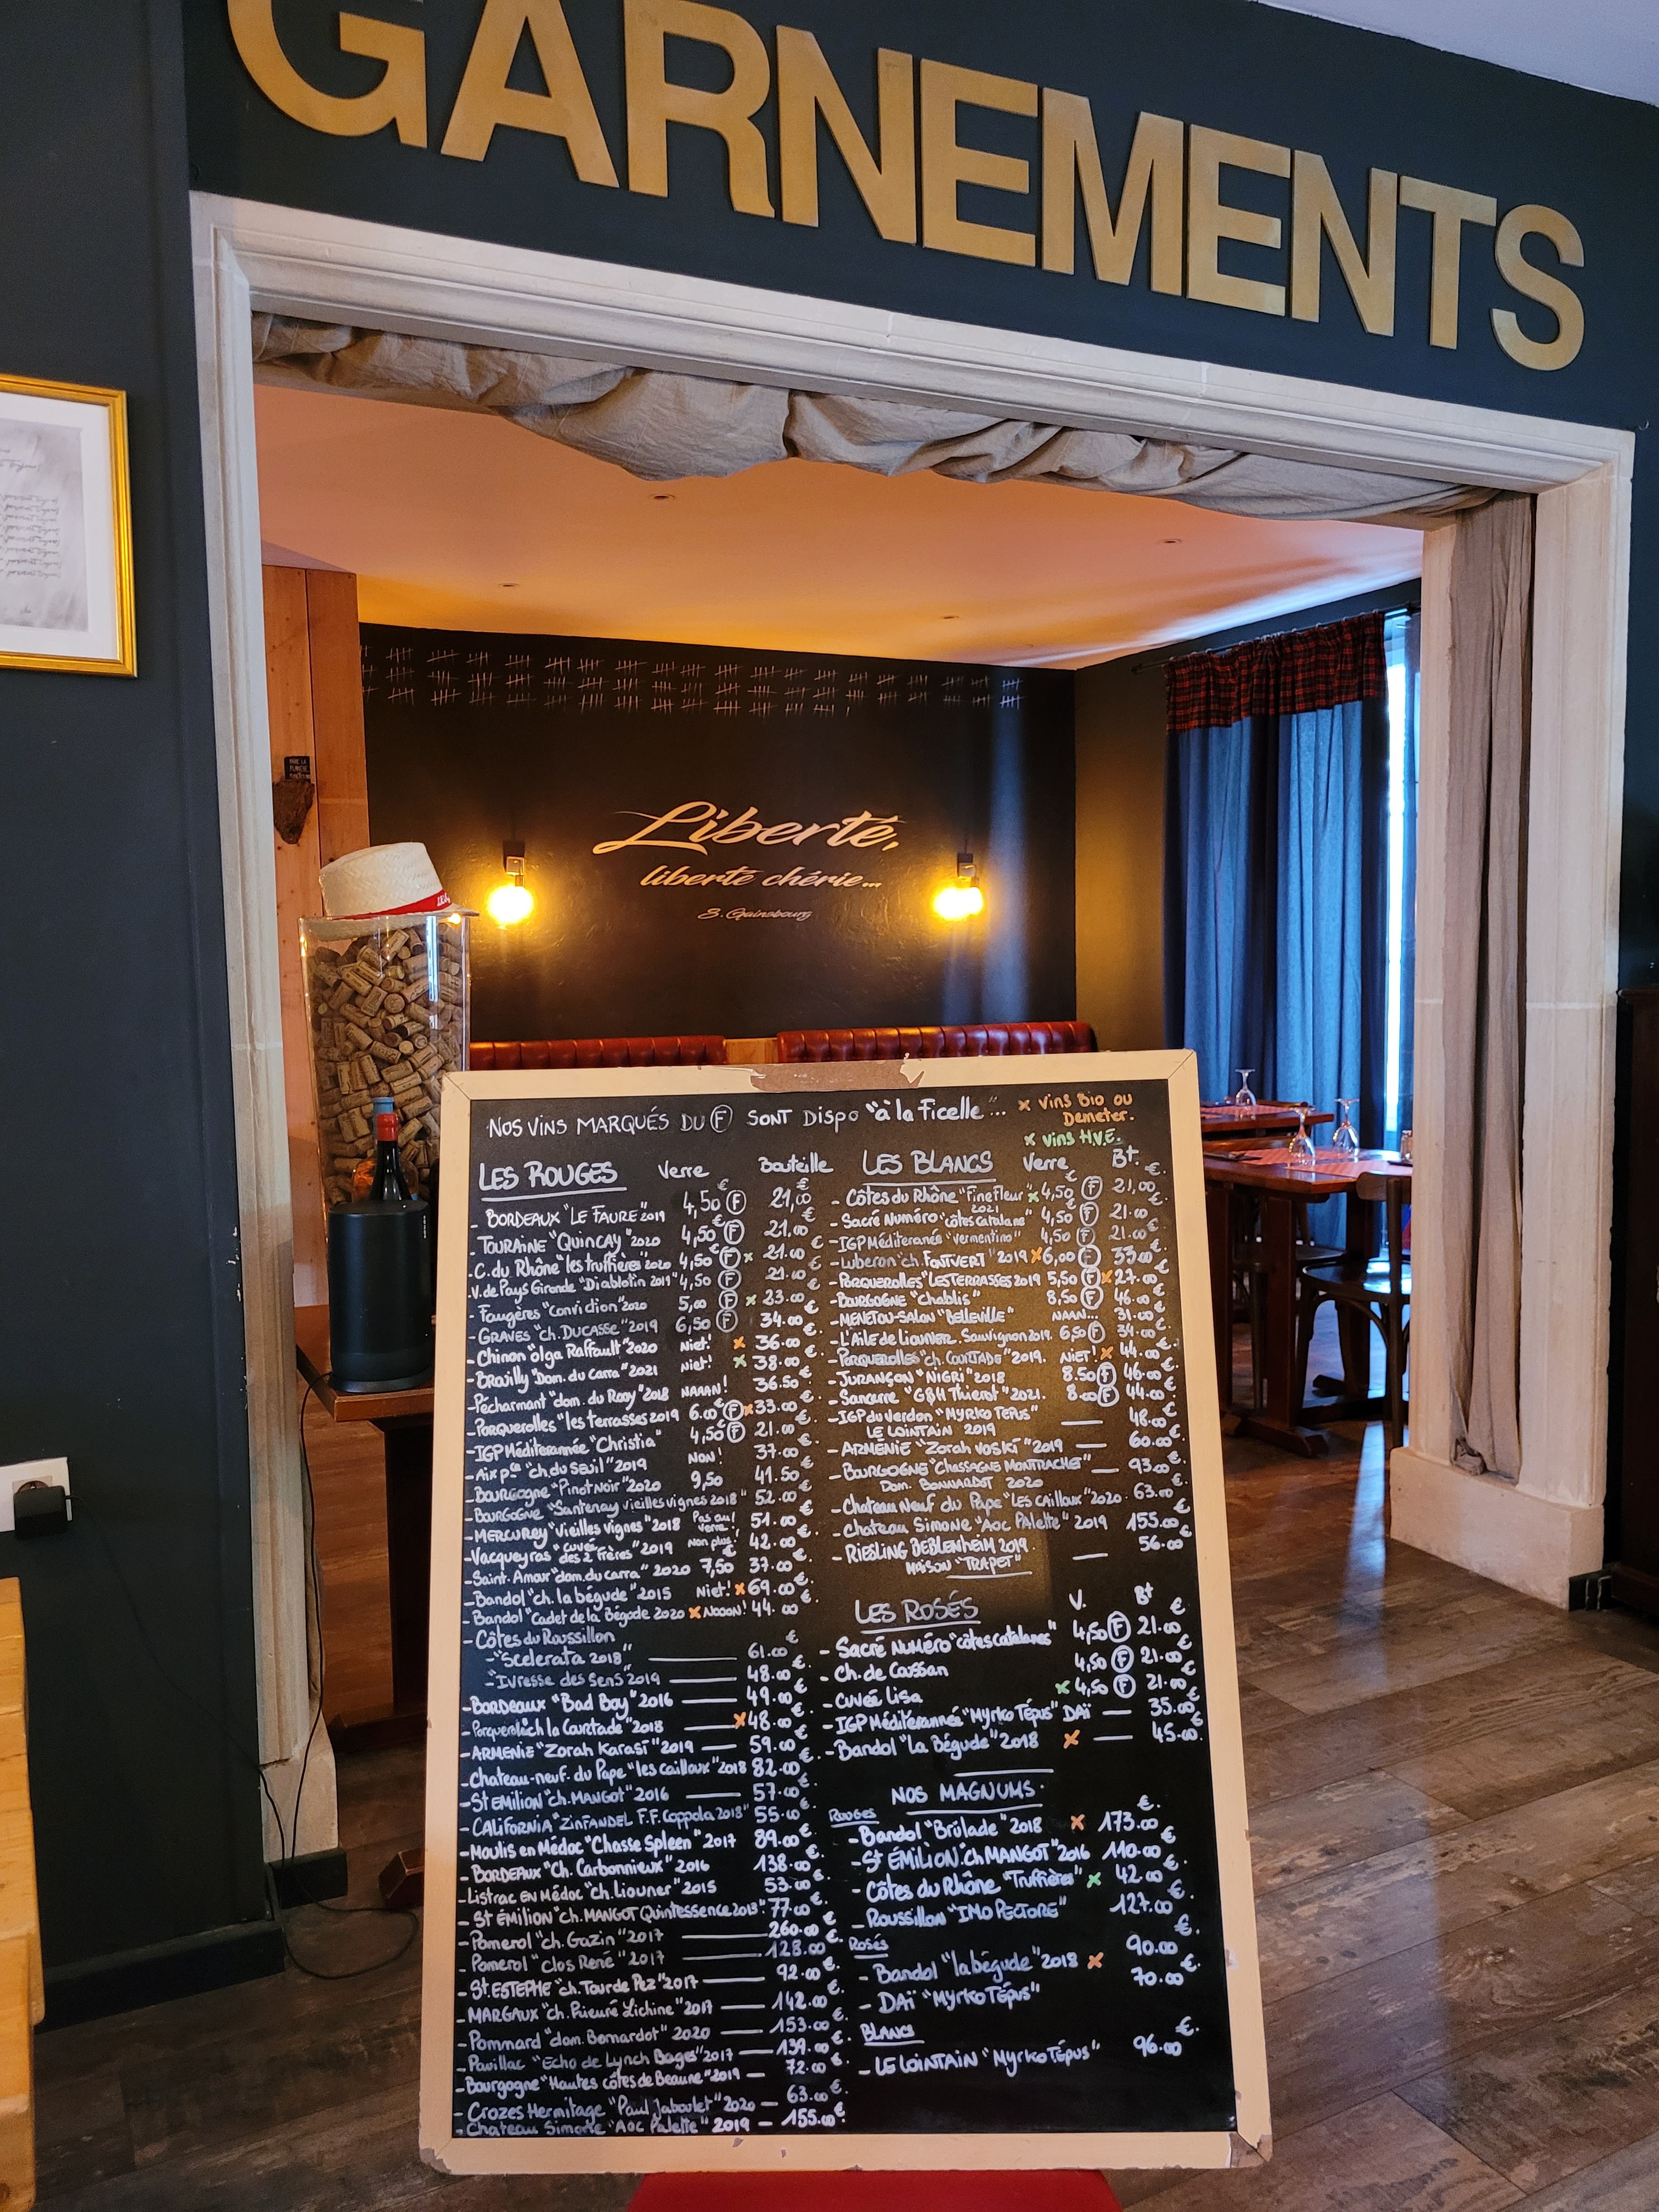 GARNEMENTS
Liberté,
liberté chérie...
S. Gainsbourg
NOS VINS MARQUÉS DU Ⓕ SONT DISPO "à la Ficelle"...
x Vins Bio ou
Demeter.
x vins H.V.E.
LES ROUGES Verre Bouteille
€ €
- BORDEAUX "LE FAURE" 2019 4,50 Ⓕ 21,00
- TOURAINE "QUINCAY" 2020 4,50 Ⓕ 21.00
- C. du Rhône "les truffières" 2020 4,50 Ⓕ x 21.00
- V. de Pays Gironde "Diablotin 2019" 4,50 Ⓕ 21.00
- Faugères "Conviction" 2020 5,00 Ⓕ x 23.00
- GRAVES "ch. DUCASSE" 2019 6,50 Ⓕ 34.00
- Chinon "olga Raffault" 2020 Niet! x 36.00
- Brouilly "Dom. du carra" 2021 Niet! x 38.00
- Pécharmant "dom. du Rooy" 2018 NAAAN! 36.50
- Porquerolles "les terrasses 2019 6.00 Ⓕ x 33.00
- IGP Méditerannée "Christia" 4,50 Ⓕ 21.00
- Aix pce "ch. du Seuil" 2019 NON! 37.00
- BOURGOGNE "Pinot Noir" 2020 9,50 41.50
- BOURGOGNE "Santenay vieilles vignes 2018" 52.00
- MERCUREY "Vieilles vignes" 2018 Pas au verre! 51.00
- Vacqueyras "cuvée des 2 frères" 2019 Non plus! 42.00
- Saint. Amour "dom. du carra" 2020 7,50 37.00
- Bandol "ch. la bégude" 2015 Niet! x 69.00
- Bandol "Cadet de la Bégude 2020 x NOOON! 44.00
- Côtes du Roussillon
- "Scelerata 2018" 61.00
- "Ivresse des Sens" 2019 48.00
- Bordeaux "Bad Boy" 2016 49.00
- Porquerolles ch la Courtade" 2018 x 48.00
- ARMENIE "Zorah Karasi" 2019 59.00
- Chateau-neuf. du Pape "les cailloux" 2018 82.00
- St EMILION "ch. MANGOT" 2016 57.00
- CALIFORNIA "ZINFANDEL F.F. Coppola 2018" 55.00
- Moulis en Médoc "Chasse Spleen" 2017 89.00
- BORDEAUX "Ch. Carbonnieux" 2016 138.00
- Listrac EN Médoc "ch. Liouner" 2015 53.00
- St ÉMILION "ch. MANGOT Quintessence 2013" 77.00
- Pomerol "ch. Gazin" 2017 260.00
- Pomerol "Clos René" 2017 128.00
- St. ESTEPHE "ch. Tour de Pez" 2017 92.00
- MARGAUX "ch. Prieuré Lichine" 2017 142.00
- Pommard "dom. Bernardot" 2020 153.00
- Pauillac "Echo de Lynch Bages" 2017 139.00
- Bourgogne "Hautes côtes de Beaune" 2019 72.00
- Crozes Hermitage "Paul Jaboulet" 2020 63.00
- Chateau Simone "Aoc Palette" 2019 155.00
LES BLANCS Verre Bt.
€ €
- Côtes du Rhône "Fine Fleur" x 4,50 Ⓕ 21,00
2021
- Sacré Numéro "côtes catalane" 4,50 Ⓕ 21.00
- IGP Méditeranée "Vermentino" 4,50 Ⓕ 21.00
- Luberon "ch. FONTVERT" 2019 x 6,00 Ⓕ 33.00
- PORQUEROLLES "LES TERRASSES 2019 5,50 Ⓕ x 27.00
- BOURGOGNE "Chablis" 8,50 Ⓕ 46.00
- MENETOU-SALON "Belleville" NAAN... 31.00
- L'Aile de Liouner. Sauvignon 2019. 6,50 Ⓕ 34.00
- Porquerolles "ch. COURTADE" 2019. NIET! x 44.00
- JURANÇON "NIGRI" 2018 8.50 Ⓕ 46.00
- Sancerre "G&H Thierot" 2021. 8.00 Ⓕ 44.00
- IGP du Verdon "MYRKO TÉPUS" 48.00
LE LOINTAIN 2019
- ARMÉNIE "Zorah VOSKI" 2019 60.00
- BOURGOGNE "CHASSAGNE MONTRACHET" 93.00
Dom. BONNARDOT 2020
- Chateau Neuf du Pape "LES CAILLOUX" 2020 63.00
- Chateau Simone "Aoc Palette" 2019 155.00
- RIESLING BEBLENHEIM 2019. 56.00
MAISON "TRAPET"
LES ROSÉS V. Bt
€
- Sacré Numéro "côtes catalanes" 4,50 Ⓕ 21.00
- Ch. de Cassan 4,50 Ⓕ 21.00
- Cuvée Lisa x 4,50 Ⓕ 21.00
- IGP Méditerannée "Myrko Tépus" DAÏ 35.00
- Bandol "La Bégude" 2018 x 45.00
NOS MAGNUMS.
ROUGES
- Bandol "Brûlade" 2018 x 173.00
- St ÉMILION. Ch MANGOT" 2016 110.00
- Côtes du Rhône "Truffières" x 42.00
- ROUSSILLON "IMO PECTORE" 127.00
Rosés
- Bandol "la bégude" 2018 x 90.00
- DAÏ "Myrko Tépus" 70.00
BLANCS
- LE LOINTAIN "Myrko Tépus" 96.00